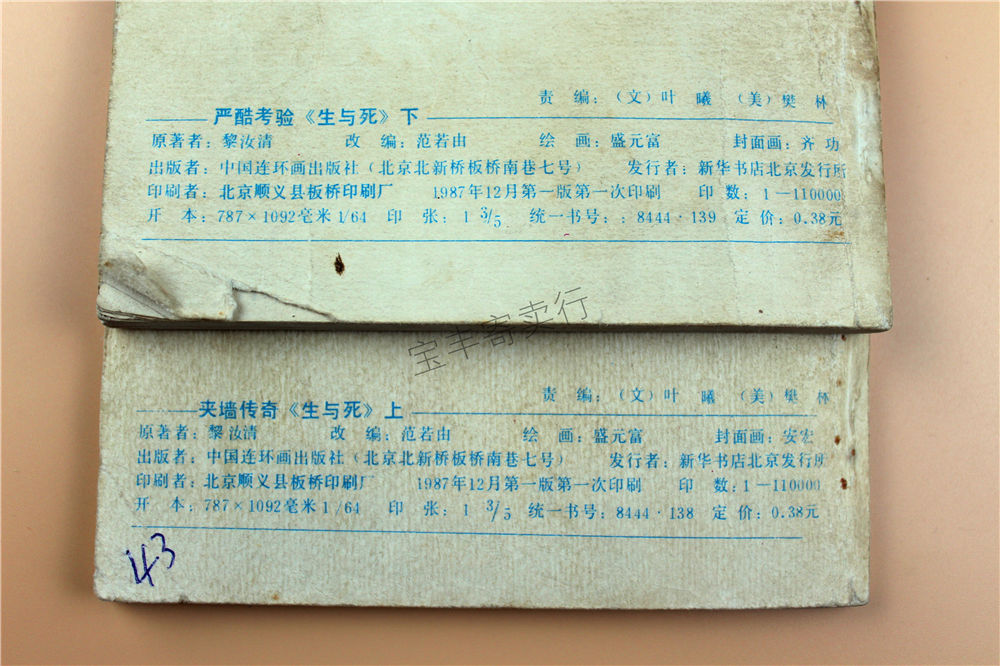 责 编：（文）叶 曦 （美）樊 林
严酷考验《生与死》下
原著者：黎汝清 改 编：范若由 绘 画：盛元富 封面画：齐 功
出版者：中国连环画出版社（北京北新桥板桥南巷七号） 发行者：新华书店北京发行所
印刷者：北京顺义县板桥印刷厂 1987年12月第一版第一次印刷 印 数：1—110000
开 本：787×1092毫米1/64 印 张：1 3/5 统一书号：：8444·139 定 价：0.38元
宝丰寄卖行
责 编：（文）叶 曦 （美）樊 林
夹墙传奇《生与死》上
原著者：黎汝清 改 编：范若由 绘 画：盛元富 封面画：安宏
出版者：中国连环画出版社（北京北新桥板桥南巷七号） 发行者：新华书店北京发行所
印刷者：北京顺义县板桥印刷厂 1987年12月第一版第一次印刷 印 数：1—110000
开 本：787×1092毫米1/64 印 张：1 3/5 统一书号：8444·138 定 价：0.38元
43